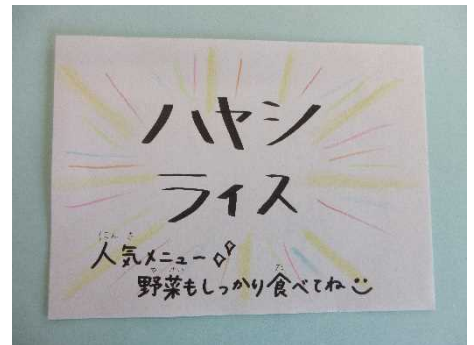 ハヤシ
ライス
人気メニュー
野菜もしっかり食べてね